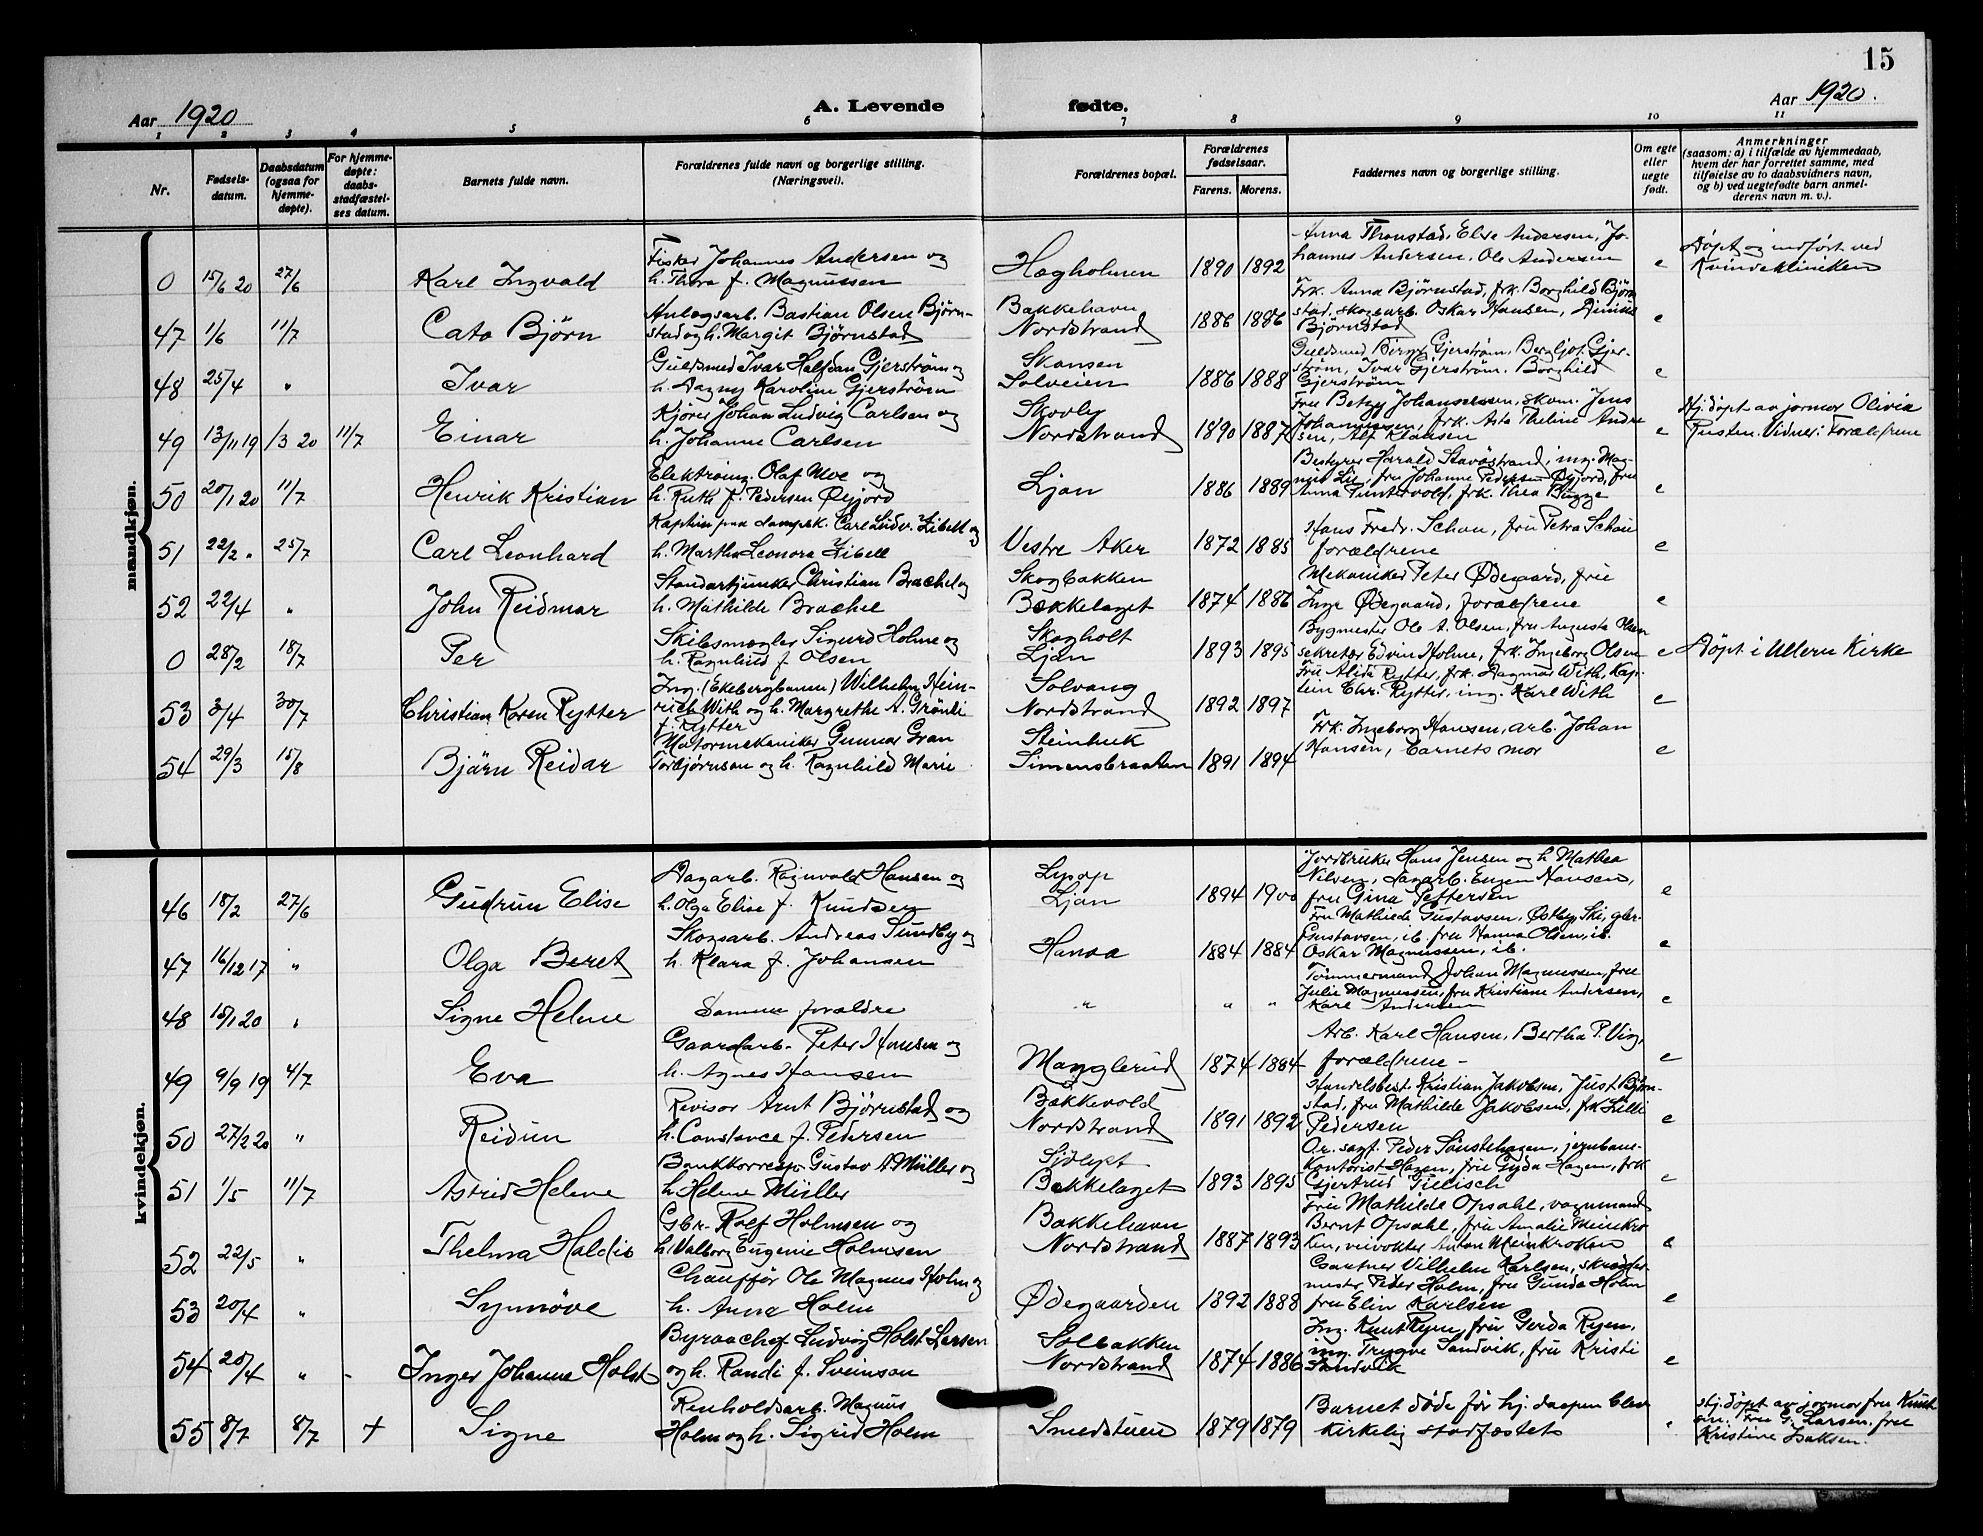 15
Aar 1920 A. Levende fødte. Aar 1920.
1 2 3 4 5 6 7 8 9 10 11
Nr.
Fødsels-
datum.
Daabsdatum
(ogsaa for
hjemme-
døpte).
For hjemme-
døpte:
daabs-
stadfæstel-
ses datum.
Barnets fulde navn.
Forældrenes fulde navn og borgerlige stilling.
(Næringsvei).
Forældrenes bopæl.
Forældrenes
fødselsaar.
Farens. Morens.
Faddernes navn og borgerlige stilling.
Om egte
eller
uegte
født.
Anmerkninger
(saasom: a) i tilfælde av hjemmedaab,
hvem der har forrettet samme, med
tilføielse av to daabsvidners navn,
og b) ved uegtefødte barn anmel-
derens navn m. v.).
mandkjøn.
0 15/6 20 27/6 Karl Ingvald
Fisker Johannes Andersen og
h. Thora f. Magnussen
Hægholmen 1890 1892
Anna Thronstad, Elise Andersen, Jo-
hannes Andersen, Ole Andersen
e
Døpt og indført ved
Kvindekliniken
47 1/6 11/7 Cato Bjørn
Anlægsarb. Bastian Olsen Bjørn-
stad og h. Margit Bjørnstad
Bakkehavn
Nordstrand 1886 1886
Frk. Anna Bjørnstad, frk. Borghild Bjørn
stad, skogsarb. Oskar Hansen,
Bjørnstad
e
48 25/4 " Ivar
Guldsmed Ivar Halfdan Gjerstrøm og
h. Dagny Karoline Gjerstrøm
Skansen
Solveien 1886 1888
Guldsmed Birger Gjerstrøm, Bergljot Gjer-
strøm, Ivar Gjerstrøm. Borghild
Gjerstrøm
e
49 13/11 19 /3 20 11/7 Einar
Kjører Johan Ludvig Carlsen og
h. Johanne Carlsen
Skovly
Nordstrand 1890 1887
Fru Betzy Johannessen, skom. Jens
Johannessen, frk. Asta Theline Andre
sen, Alf Klausen
e
Hj.døpt av jormor Olivia
Rusten. Vidner: Forældrene
50 20/1 20 11/7 Henrik Kristian
Elektroing. Olaf Moe og
h. Ruth f. Pedersen Øijord
Ljan 1886 1889
Bestyrer Harald Stavøstrand, ing. Mag-
nus Lie, fru Johanne Pedersen Øijord, fru
Anna Puntervold, frk. Thea Bugge
e
51 22/2 " 25/7 Carl Leonhard
Kaptein paa dampsk. Carl Ludv. Zibell og
h. Martha Leonora Zibell
Vestre Aker 1872 1885
Hans Fredr. Schou, fru Petra Schou
forældrene
e
52 22/4 " John Reidmar
Standartjunker Christian Brachel og
h. Mathilde Brachel
Skogbakken
Bækkelaget 1874 1886
Mekaniker Peter Ødegaard, fru
Inga Ødegaard, forældrene
e
0 28/2 18/7 Per
Skibsmægler Sigurd Holme og
h. Ragnhild f. Olsen
Skogholt
Ljan 1893 1895
Bygmester Ole A. Olsen, fru Augusta Olsen
sekretær Edvin Holme, frk. Ingeborg Olsen
e Døpt i Ullern Kirke
53 3/4 30/7 Christian Koren Rytter
Ing. (Ekebergbanen) Wilhelm Hein-
rich With og h. Margrethe A. Grönli
f. Rytter
Solvang
Nordstrand 1892 1897
Fru Alida Rytter, frk. Dagmar With, Kap-
tein Chr. Rytter, ing. Karl With
e
54 29/3 15/8 Bjärn Reidar
Motormekaniker Gunnar Gran
Torbjørnsen og h. Ragnhild Marie
Steinbuk
Simensbraaten 1891 1894
Frk. Ingeborg Hansen, arb. Johan
Hansen, barnets mor
e
kvindekjøn.
46 18/2 27/6 Gudrun Elise
Dagarb. Ragnvald Hansen og
h. Olga Elise f. Knudsen
Lysop
Ljan 1894 1900
Jordbruker Hans Jensen og h. Mathea
Nilsen, dagarb. Eugen Hansen,
fru Gina Pettersen
e
47 16/12 17 " Olga Beret
Skogsarb. Andreas Sundby og
h. Klara f. Johansen
Hansa 1884 1884
Fru Mathilde Gustavsen, Østby, Ski, glar-
Gustavsen, ib. fru Hanna Olsen, ib.
Oskar Magnussen, ib.
e
48 15/1 20 " Signe Helene
Samme forældre
" " "
Tømmermand Johan Magnussen, fru
Julie Magnussen, fru Kristiane Andersen,
Karl Andersen
e
49 9/9 19 4/7 Eva
Gaardarb. Peter Hansen og
h. Agnes Hansen
Manglerud 1874 1884
Arb. Karl Hansen, Bertha P. Vig,
forældrene -
e
50 27/2 20 " Reidun
Revisor Arnt Bjørnstad og
h. Constance f. Pedersen
Bækkevold
Nordstrand 1891 1892
Handelsbest. Kristian Jakobsen, Just Bjørn-
stad, fru Mathilde Jakobsen, frk Lilli
Pedersen
e
51 1/5 11/7 Astrid Helene
Bankkorresp. Gustav A Müller og
h. Helene Müller
Bækkelaget 1893 1895
O.r. sagf. Peder Sønstehagen, jernbane-
kontorist Hagen, fru Gyda Hagen, frk
Gjertrud Gillisch
e
52 22/5 " Thelma Haldis
Gbr. Rolf Holmsen og
h. Valborg Eugenie Holmsen
Bakkehavn
Nordstrand 1887 1893
Fru Mathilde Opsahl, vognmand
Bernt Opsahl, fru Amalie Meinkro
ken, veivokter Anton Meinkroken
e
53 20/4 " Synnöve
Chauffør Ole Magnus Holm og
h. Anna Holm
Ødegaarden 1892 1888
Gartner Vilhelm Karlsen, skrædder
mester Peder Holm, fru Gunda Holm
fru Elin Karlsen
e
54 20/4 " - Inger Johanne Holst
Byraachef Ludvig Holst Larsen
og h. Randi f. Sveinson
Solbakken
Nordstrand 1874 1886
Ing. Knut Ryen, fru Gerda Ryen,
ing. Trygve Sandvik, fru Kristi
Sandvik
e
55 8/7 8/7 + Signe
Renholdsarb. Magnus
Holm og h. Sigrid Holm
Smedstuen 1879 1879
Barnet døde før hj. daapen blev
kirkelig stadfæstet
Hj.døpt av jormor fru Knut
sen. Fru G. Larsen. fru
Kristine Isaksen.